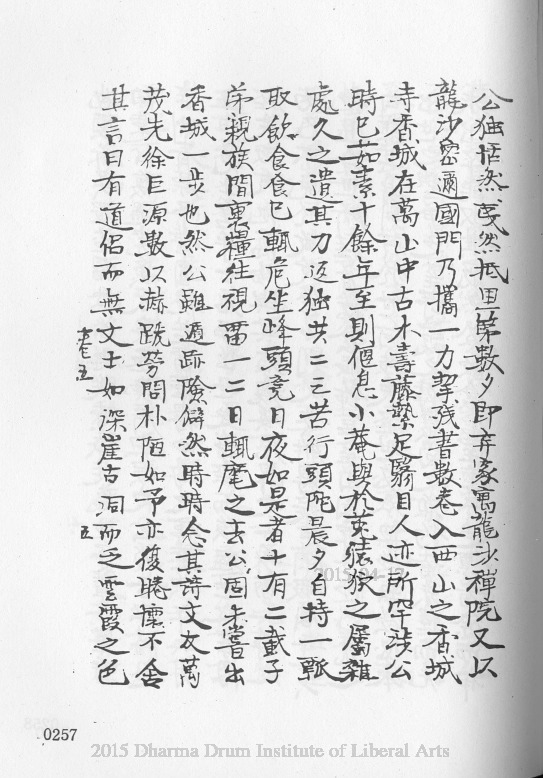 公独恬然戞然抵里第數夕即弃家寓龍沙禪院又以
龍沙密邇國門乃攜一力挈残書數卷入西山之香城
寺香城在萬山中古木壽藤縶足翳目人迹所罕涉公
時已茹素十餘年至則偃息小菴與於菟猿狖之屬雜
處久之遣其力返独共二三苦行頭陀晨夕自持一瓢
取飲食食已輒危坐峰頭竟日夜如是者十有二載子
弟親族間裹糧往視畱一二日輒麾之去公固未嘗出
香城一步也然公雖遁跡險僻然時時念其詩文友萬
茂先徐巨源數以赫蹏勞問朴陋如予亦復睠懷不舍
其言曰有道侶而無文士如深崖古洞而乏雲霞之色
卷五
五
2015-04-17
0257
2015 Dharma Drum Institute of Liberal Arts